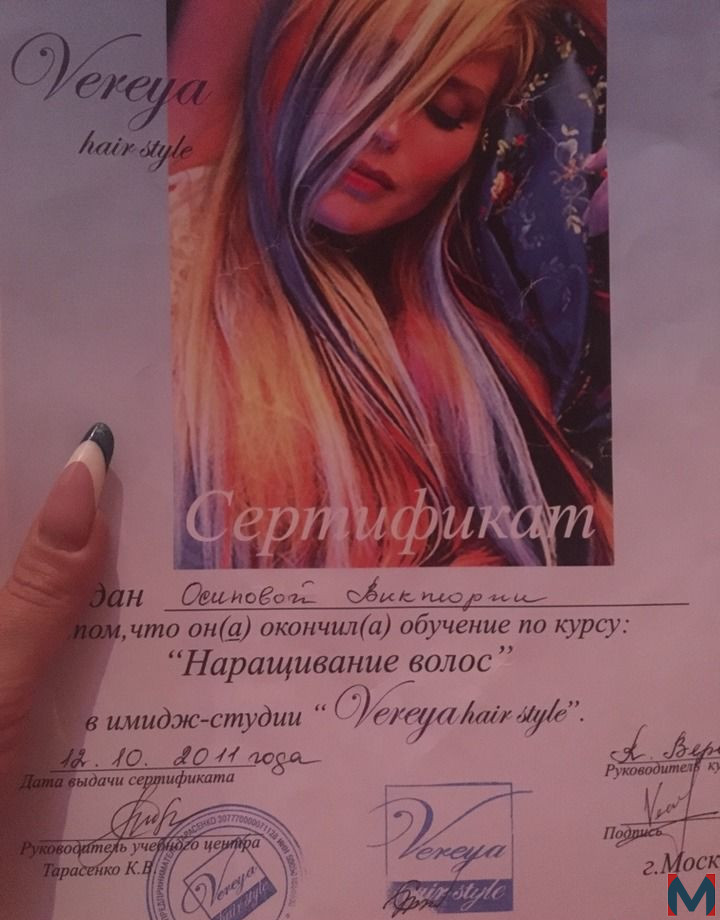 Vereya
hair style
Сертификат
дан Осиповой Виктории
том, что он(а) окончил(а) обучение по курсу:
“Наращивание волос”
в имидж-студии “Vereya hair style”.
12. 10. 2011 года
Дата выдачи сертификата
К. Вер
Руководитель ку
Руководитель учебного центра
Тарасенко К.В.
Подпись
г.Моск
Vereya
hair style
Vereya
hair style
M